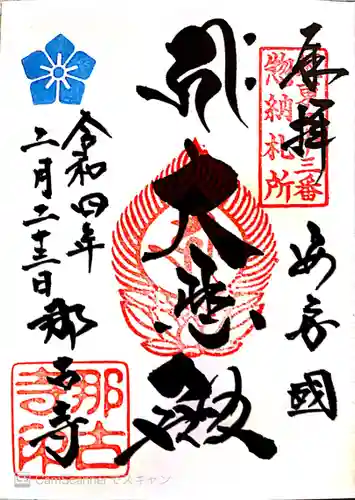 奉拝
三番
惣納札所
安房國
大悲殿
令和四年
二月二十三日
那古寺
那古
寺印
CamScanner でスキャン